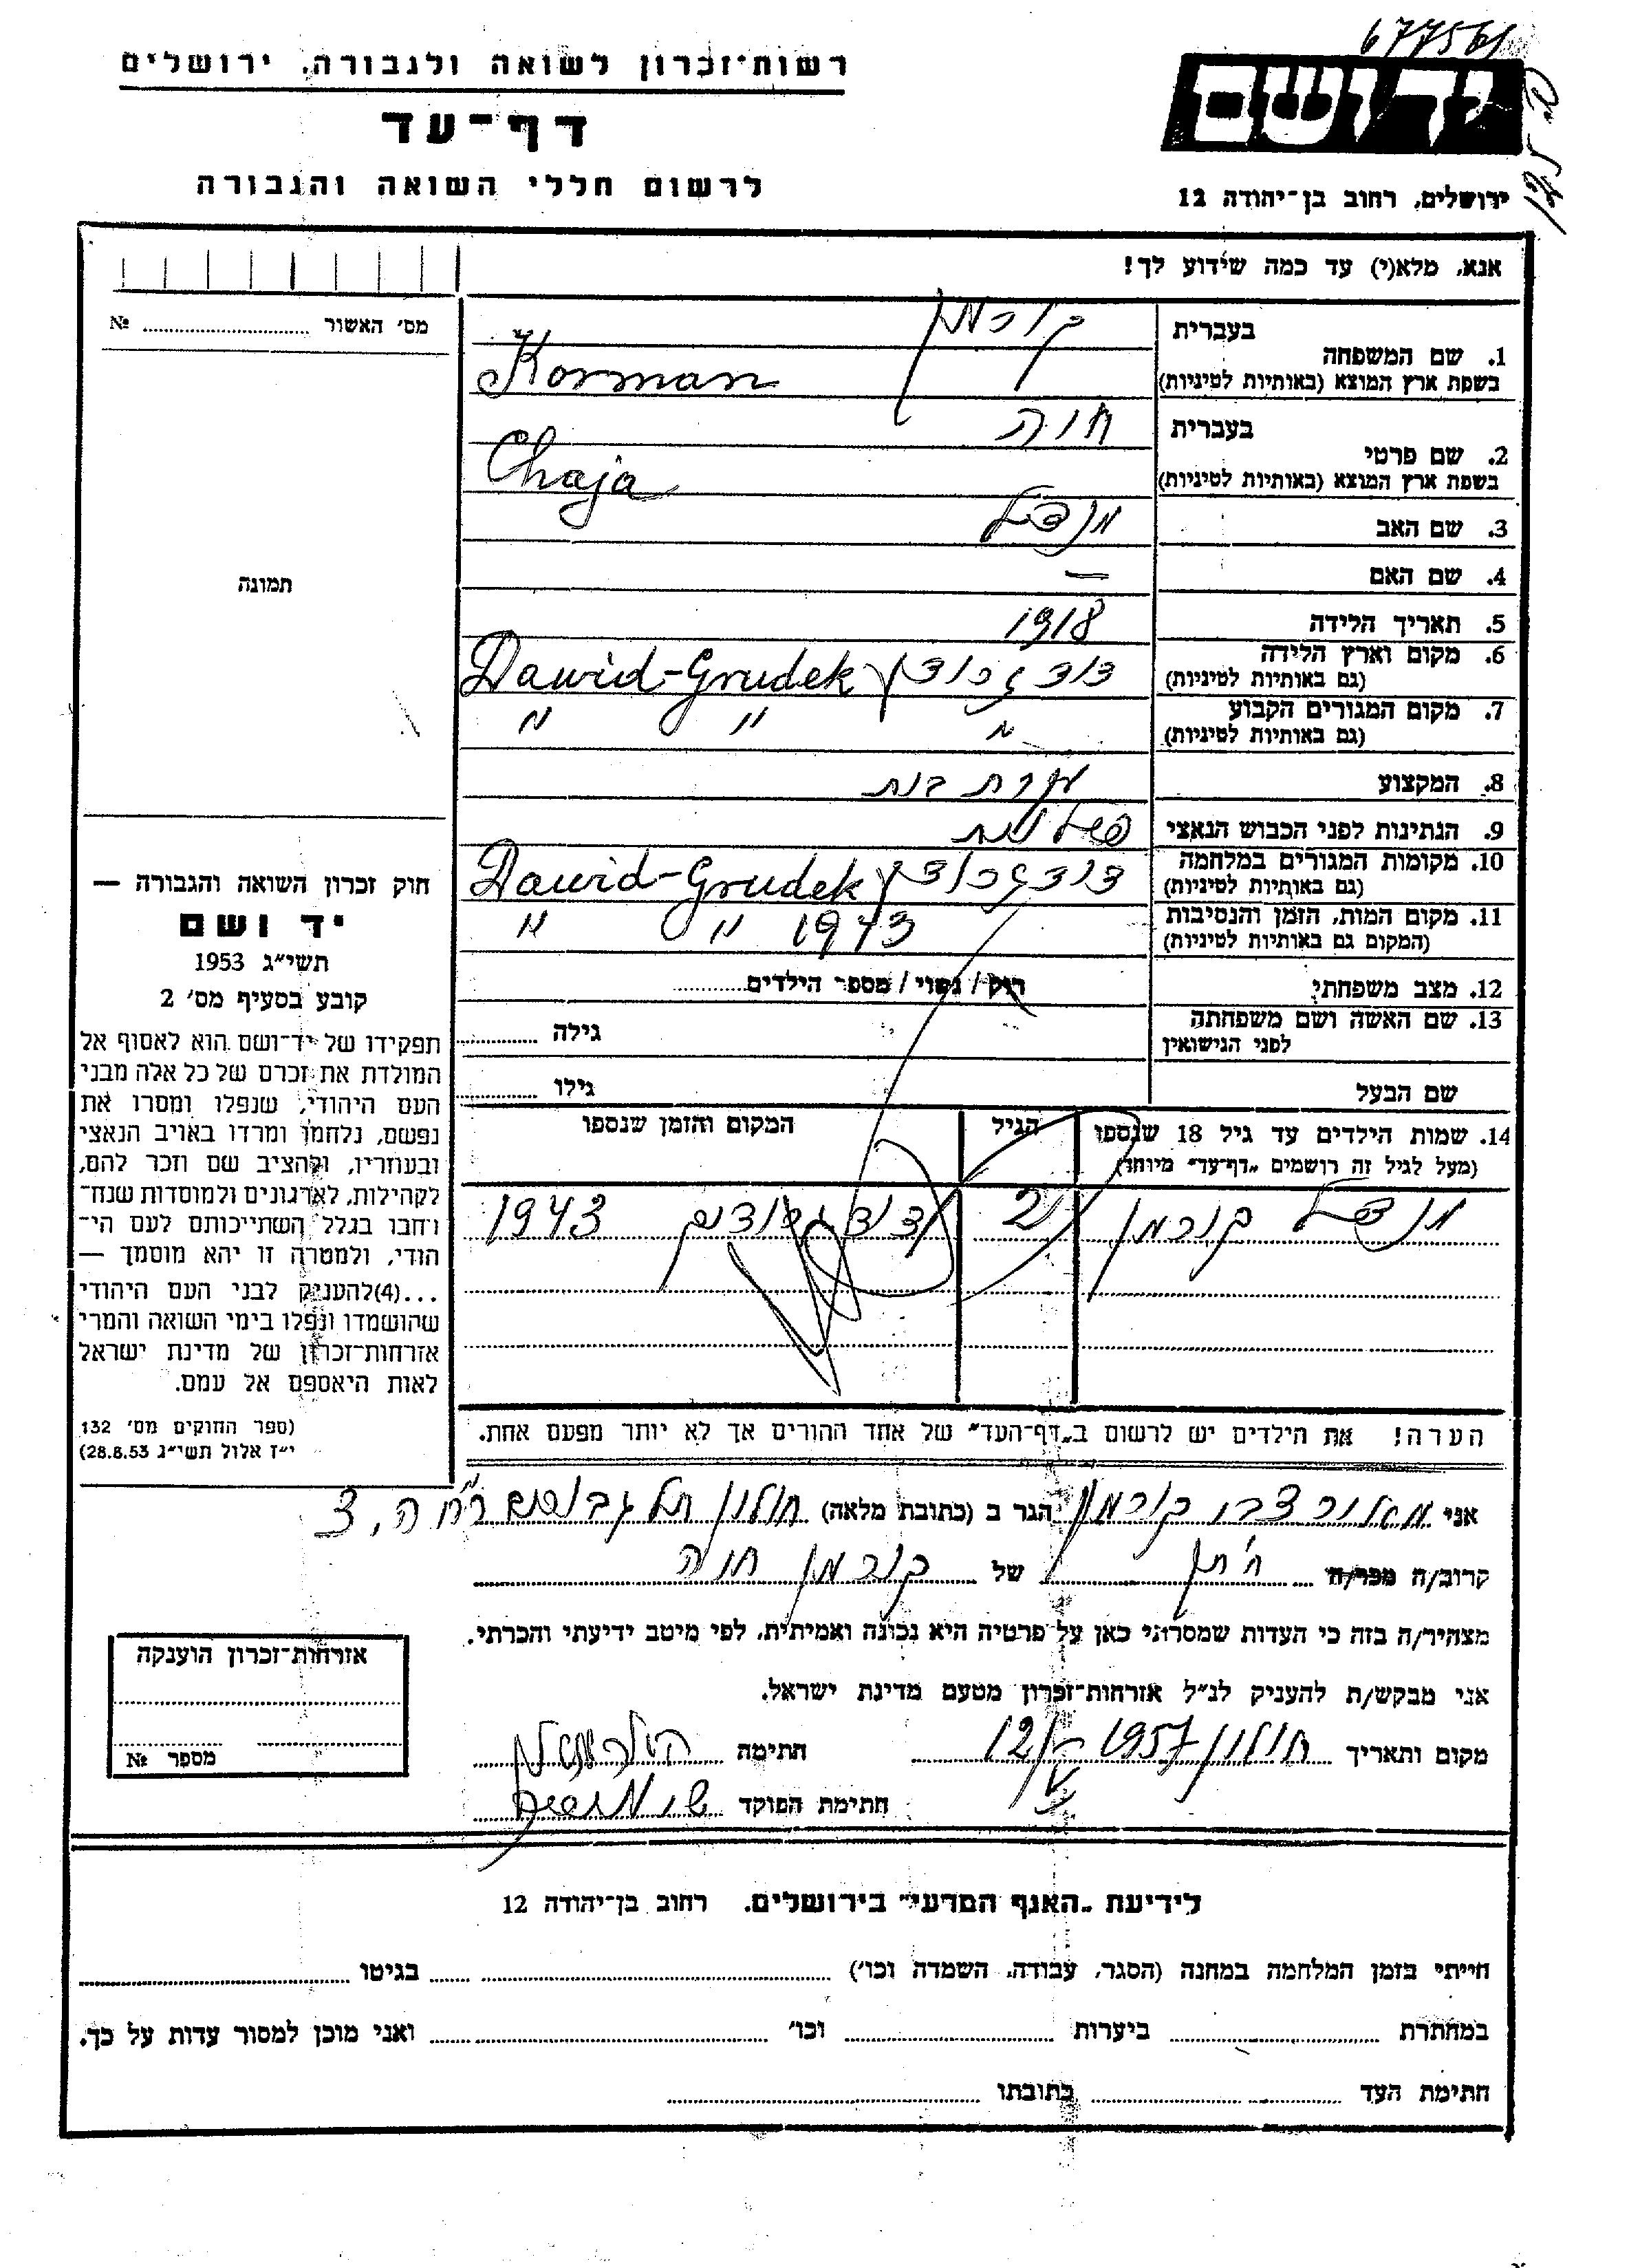 677561
רשות־זכרון לשואה ולגבורה, ירושלים
יד ושם
דף־עד
לרשום חללי השואה והגבורה
ירושלים, רחוב בן־יהודה 12
אנא, מלא(י) עד כמה שידוע לך!
מס׳ האשור № 
תמונה
1. שם המשפחה
בעברית קורמן
בשפת ארץ המוצא (באותיות לטיניות) Korman
2. שם פרטי
בעברית חיה
בשפת ארץ המוצא (באותיות לטיניות) Chaja
3. שם האב מנדל
4. שם האם —
5. תאריך הלידה 1918
6. מקום וארץ הלידה
(גם באותיות לטיניות) Dawid-Grudek
7. מקום המגורים הקבוע
(גם באותיות לטיניות) " " "
8. המקצוע עקרת בית
9. הנתינות לפני הכבוש הנאצי
10. מקומות המגורים במלחמה
(גם באותיות לטיניות) Dawid-Grudek
11. מקום המות, הזמן והנסיבות
(המקום גם באותיות לטיניות) 1943 " "
12. מצב משפחתי רוק / נשוי / מספר הילדים
13. שם האשה ושם משפחתה
לפני הנישואין
גילה
שם הבעל
גילו
14. שמות הילדים עד גיל 18 שנספו
(מעל לגיל זה רושמים „דף־עד" מיוחד)
הגיל
המקום והזמן שנספו
מנדל קורמן 1943
הערה! את הילדים יש לרשום ב„דף־העד" של אחד ההורים אך לא יותר מפעם אחת.
חוק זכרון השואה והגבורה —
יד ושם
תשי״ג 1953
קובע בסעיף מס׳ 2
תפקידו של יד־ושם הוא לאסוף אל
המולדת את זכרם של כל אלה מבני
העם היהודי, שנפלו ומסרו את
נפשם, נלחמו ומרדו באויב הנאצי
ובעוזריו, ולהציב שם וזכר להם,
לקהילות, לארגונים ולמוסדות שנח־
רחבו בגלל השתייכותם לעם הי־
הודי, ולמטרה זו יהא מוסמך —
...(4)להעניק לבני העם היהודי
שהושמדו ונפלו בימי השואה והמרי
אזרחות־זכרון של מדינת ישראל
לאות היאספם אל עמם.
(ספר החוקים מס׳ 132
י״ז אלול תשי״ג 28.8.53)
אני קורמן הגר ב (כתובת מלאה) חולון תל
קרוב/ה מכר/ה של קורמן חיה
מצהיר/ה בזה כי העדות שמסרתי כאן על פרטיה היא נכונה ואמיתית, לפי מיטב ידיעתי והכרתי.
אני מבקש/ת להעניק לנ״ל אזרחות־זכרון מטעם מדינת ישראל.
מקום ותאריך חולון 1957 חתימה
חתימת הפוקד
אזרחות־זכרון הוענקה
מספר №
לידיעת „האנף המדעי" בירושלים, רחוב בן־יהודה 12
חייתי בזמן המלחמה במחנה (הסגר, עבודה, השמדה וכו׳) בגיטו
במחתרת ביערות וכו׳ ואני מוכן למסור עדות על כך.
חתימת העד כתובתו